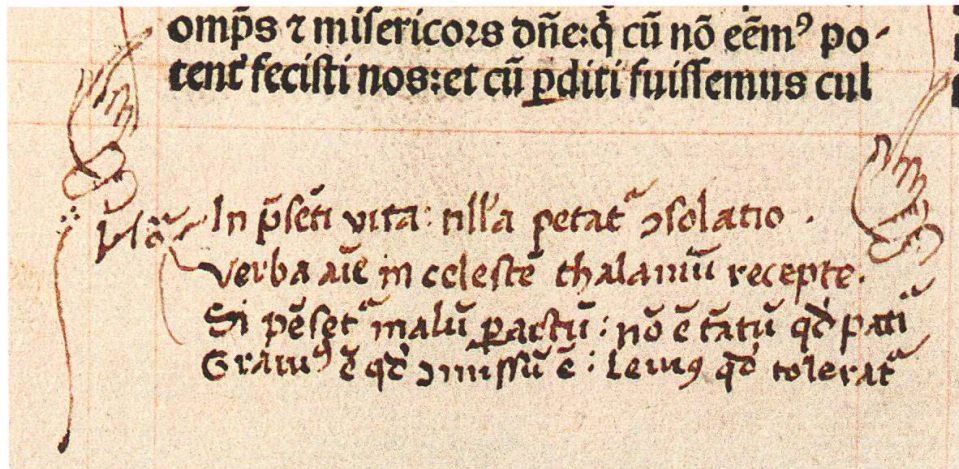 omp̄s ⁊ miſericors dn̄e:q̄ cū nō eēmꝰ po-
tent᷑ feciſti nos:et cū ꝑditi fuiſſemus cul
In p̄ſēti vita: nll'a petat᷑ ↄſolatio .
Verba aīe in celeſtē thalamū recepte.
Si pēſet᷑ malū ꝑactū: nō ē tātū qd̄ pati᷑
Grauiꝰ ē qd̄ ↄmiſſū ē: leuiꝰ qd̄ tolerat᷑